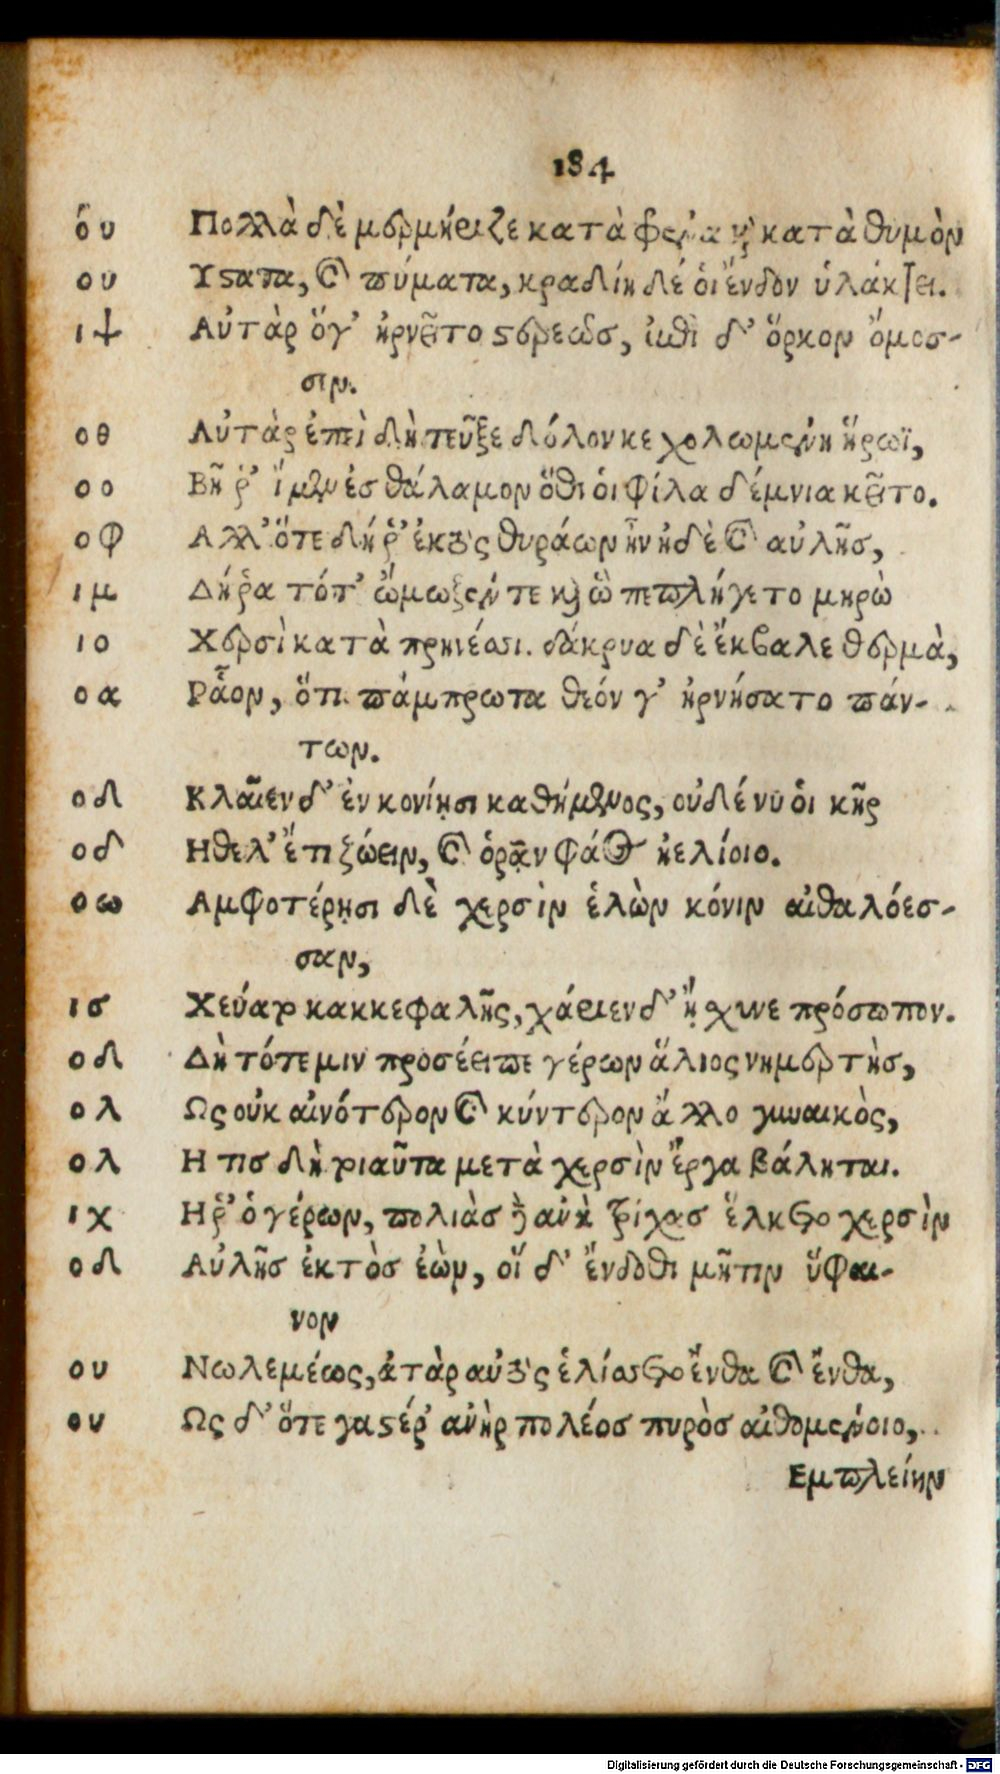 184
ὅυ Πολλὰ δὲ μερμήριζε κατὰ φρένα καὶ κατὰ θυμὸν
ου Υστατα, καὶ πύματα, κραδίη δέ οἱ ἔνδον ὑλάκτει.
ιψ Αὐτὰρ ὅγ' ἠρνεῖτο στερεῶς, ἐπὶ δ' ὅρκον ὄμοσ-
σεν.
οθ Αὐτὰρ ἐπεὶ δὴ τεῦξε δόλον κεχολωμένη ἥρωϊ,
οο Βῆ ῥ' ἴμεν ἐς θάλαμον ὅθι οἱ φίλα δέμνια κεῖτο.
οφ Αλλ' ὅτε δή ῥ' ἐκτὸς θυράων ἦν ἠδὲ καὶ αὐλῆς,
ιμ Δή ῥα τότ' ᾤμωξέν τε καὶ ὣ πεπλήγετο μηρὼ
ιο Χερσὶ καταπρηνέσσι. δάκρυα δὲ ἔκβαλε θερμὰ,
οα Ρᾶον, ὅτι πάμπρωτα θεόν γ' ἠρνήσατο πάν-
των.
οδ Κλαῖεν δ' ἐν κονίῃσι καθήμενος, οὐδέ νύ οἱ κῆρ
οδ Ηθελ' ἔτι ζώειν, καὶ ὁρᾷν φάος ἠελίοιο.
οω Αμφοτέρῃσι δὲ χερσὶν ἑλὼν κόνιν αἰθαλόεσ-
σαν,
ισ Χεύατο κακκεφαλῆς, χάριεν δ' ᾔσχυνε πρόσωπον.
οδ Δὴ τότε μιν προσέειπε γέρων ἅλιος νημερτὴς,
ολ Ως οὐκ αἰνότερον καὶ κύντερον ἄλλο γυναικὸς,
ολ Η τις δὴ τοιαῦτα μετὰ χερσὶν ἔργα βάληται.
ιχ Η ῥ' ὁ γέρων, πολιὰς δ' ἄρ' ἀνὰ τρίχας ἕλκετο χερσὶν
οδ Αὐλῆς ἐκτὸς ἐὼν, οἵ δ' ἔνδοθι μῆτιν ὕφαι-
νον
ου Νωλεμέως, ἀτὰρ αὐτὸς ἑλίσσετο ἔνθα καὶ ἔνθα,
ου Ως δ' ὅτε γαστέρ' ἀνὴρ πολέος πυρὸς αἰθομένοιο,
Εμπλείην
Digitalisierung gefördert durch die Deutsche Forschungsgemeinschaft - DFG